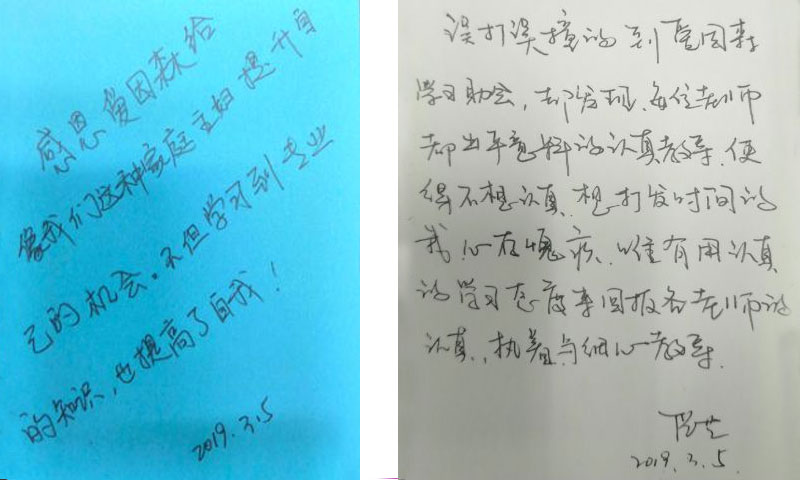 感恩爱因森给
像我们这种家庭主妇提升自
己的机会。不但学习到专业
的知识，也提高了自我！
2019.3.5
误打误撞的到爱因森
学习助会，却发现，每位老师
都出乎意料的认真教导，使
得不想认真、想打发时间的
我心存愧疚，唯有用认真
的学习态度来回报各老师的
认真、执着与细心教导。
2019.3.5.